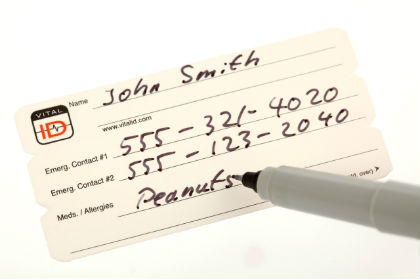 VITAL
ID
Name John Smith
www.vitalid.com
Emerg. Contact #1 555-321-4020
Emerg. Contact #2 555-123-2040
Meds. / Allergies Peanuts
over) >